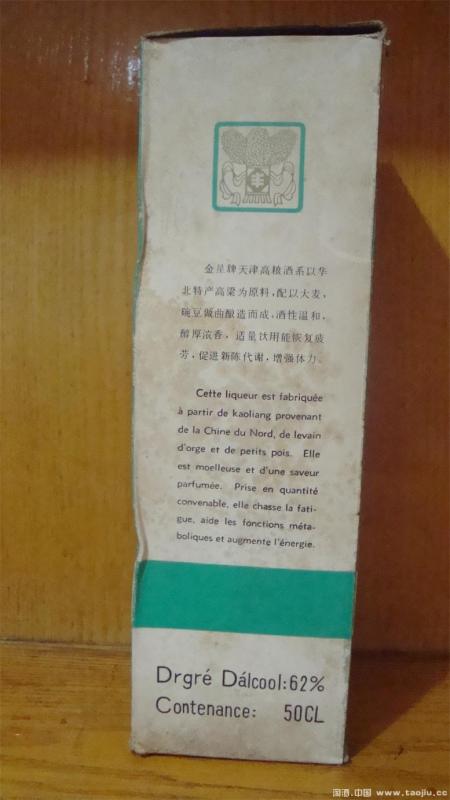 丰
金星牌天津高粮酒系以华
北特产高粱为原料，配以大麦，
碗豆做曲酿造而成，酒性温和，
醇厚浓香，适量饮用能恢复疲
劳，促进新陈代谢，增强体力。
Cette liqueur est fabriquée
à partir de kaoliang provenant
de la Chine du Nord, de levain
d'orge et de petits pois. Elle
est moelleuse et d'une saveur
parfumée. Prise en quantité
convenable, elle chasse la fati-
gue, aide les fonctions méta-
boliques et augmente l'énergie.
Drgré Dálcool:62%
Contenance: 50CL
淘酒.中国 www.taojiu.cc